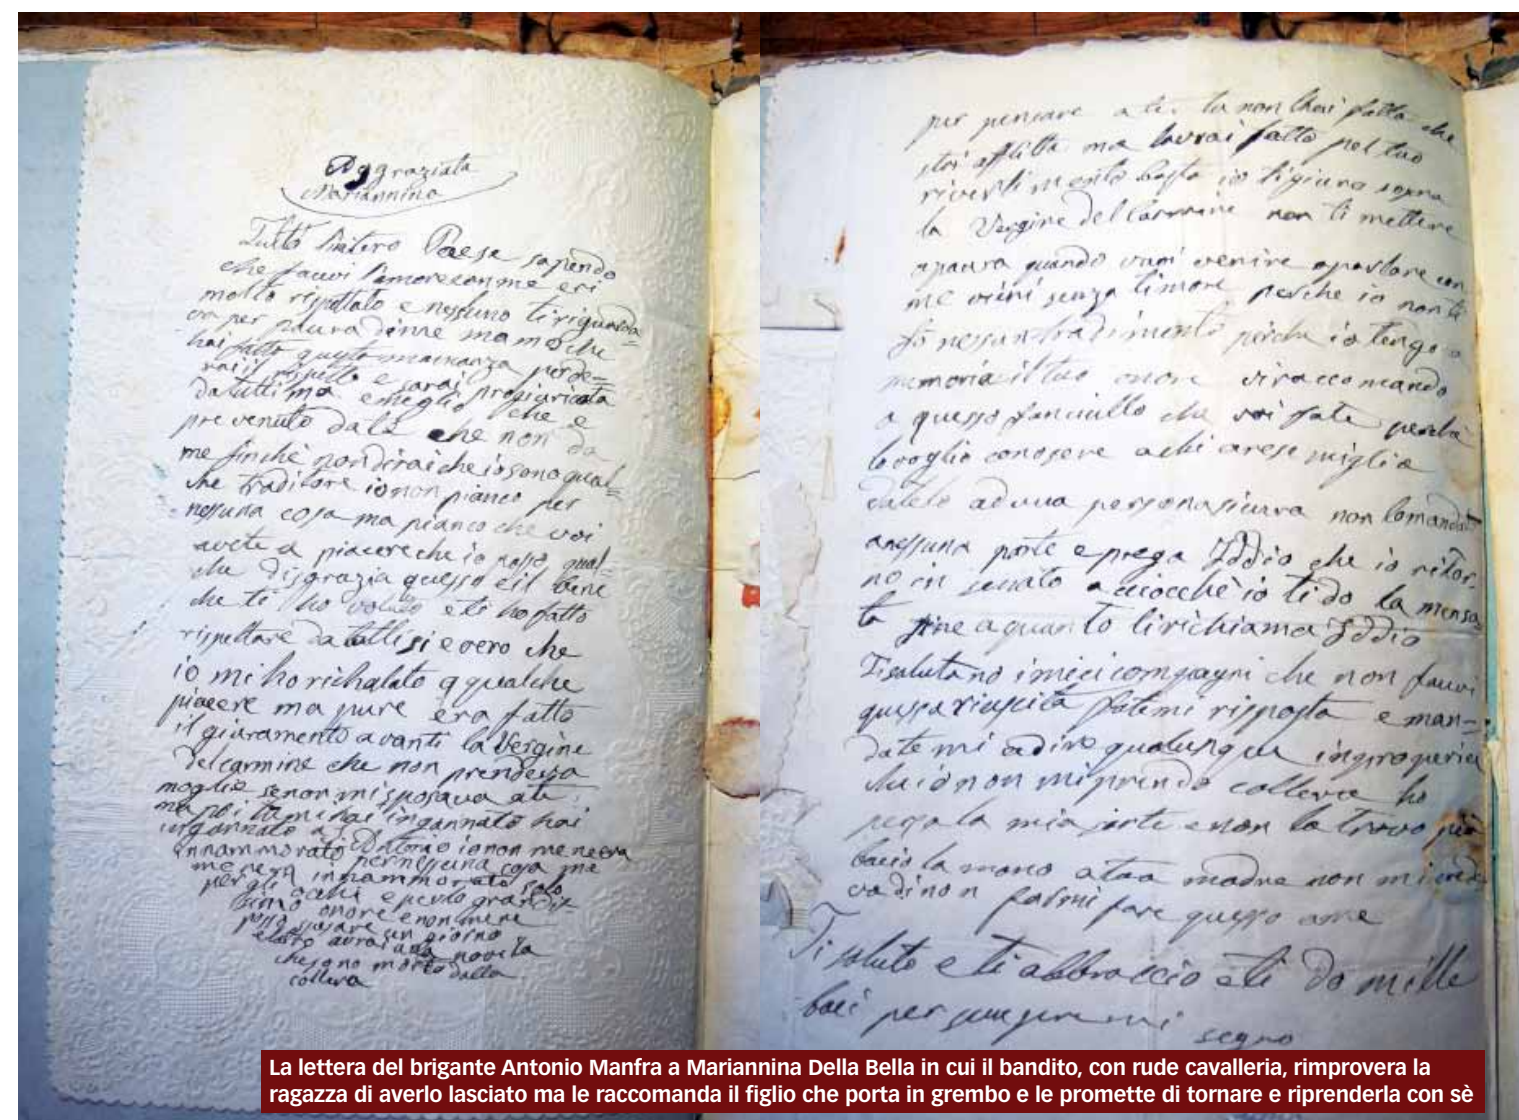 Aggraziata
Mariannina
Tutto lintero Paese sapendo
che facivi lamore con me eri
molto rispettato e nessuno ti riguarda=
va per paura di me ma mo che
hai fatto questa mancanza perde=
rai il rispetto e sarai
da tutti ma e meglio che e
prevenuto da te che non da
me finche non dirai che io sono qual=
che traditore io non pianco per
nessuna cosa ma pianco che voi
avete a piacere che io passo qual=
che disgrazia quesso e il bene
che ti ho voluto e ti ho fatto
rispettare da tutti si e vero che
io mi ho richalato q qualche
piacere ma pure era fatto
il giuramento avanti la Vergine
del carmine che non prendeva
moglie se non mi sposava a te
ma poi tu mi hai ingannato hai
ingannato a
innammorato Antonio io non me ne era
per nessuna cosa me
me nera innammorato solo
per gli occhi e pento grandis=
simo onore e non mene
posso sposare un giorno
e laltro avrai la novella
che sono morto dalla
collera
per pensare a te tu non lhai fatto che
stai afflitta ma lavrai fatto pel tuo
rivestimento basta io ti giuro sopra
la Vergine del Carmine non ti mettere
apaura quando vuoi venire a parlare con
me vieni senza timore perche io non ti
fo nessun tradimento perche io tengo a
memoria il tuo onore vi raccomando
a quesso fanciullo che voi fate perche
lo voglio conoscere a chi aresemiglia
datelo aduna persona sicura non lo mandat
anessuna parte e prega Iddio che io ritor=
no in senato acciocchè io ti do la mensa
ta fine a quanto ti richiama Iddio
Ti salutano i miei compagni che non facivi
quesa riuscita fatemi risposta e man=
date mi adire qualunqua improperia
che io non mi prendo collera ho
persa la mia sorte e non la trovo più
bacio la mano a tua madre non mi
vadi non farmi fare quesso a me
Ti saluto e ti abbraccio e ti do mille
baci per
segno
La lettera del brigante Antonio Manfra a Mariannina Della Bella in cui il bandito, con rude cavalleria, rimprovera la
ragazza di averlo lasciato ma le raccomanda il figlio che porta in grembo e le promette di tornare e riprenderla con sè